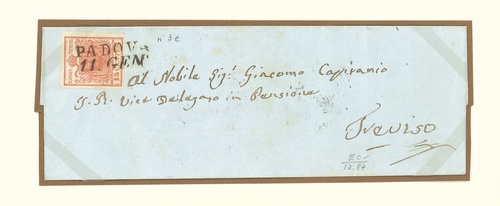 n° 3e
PADOVA
11. GEN.
15
Al Nobile Sig.r Giacomo
I. R. Vice Delegato in Pensione
Treviso
12.87